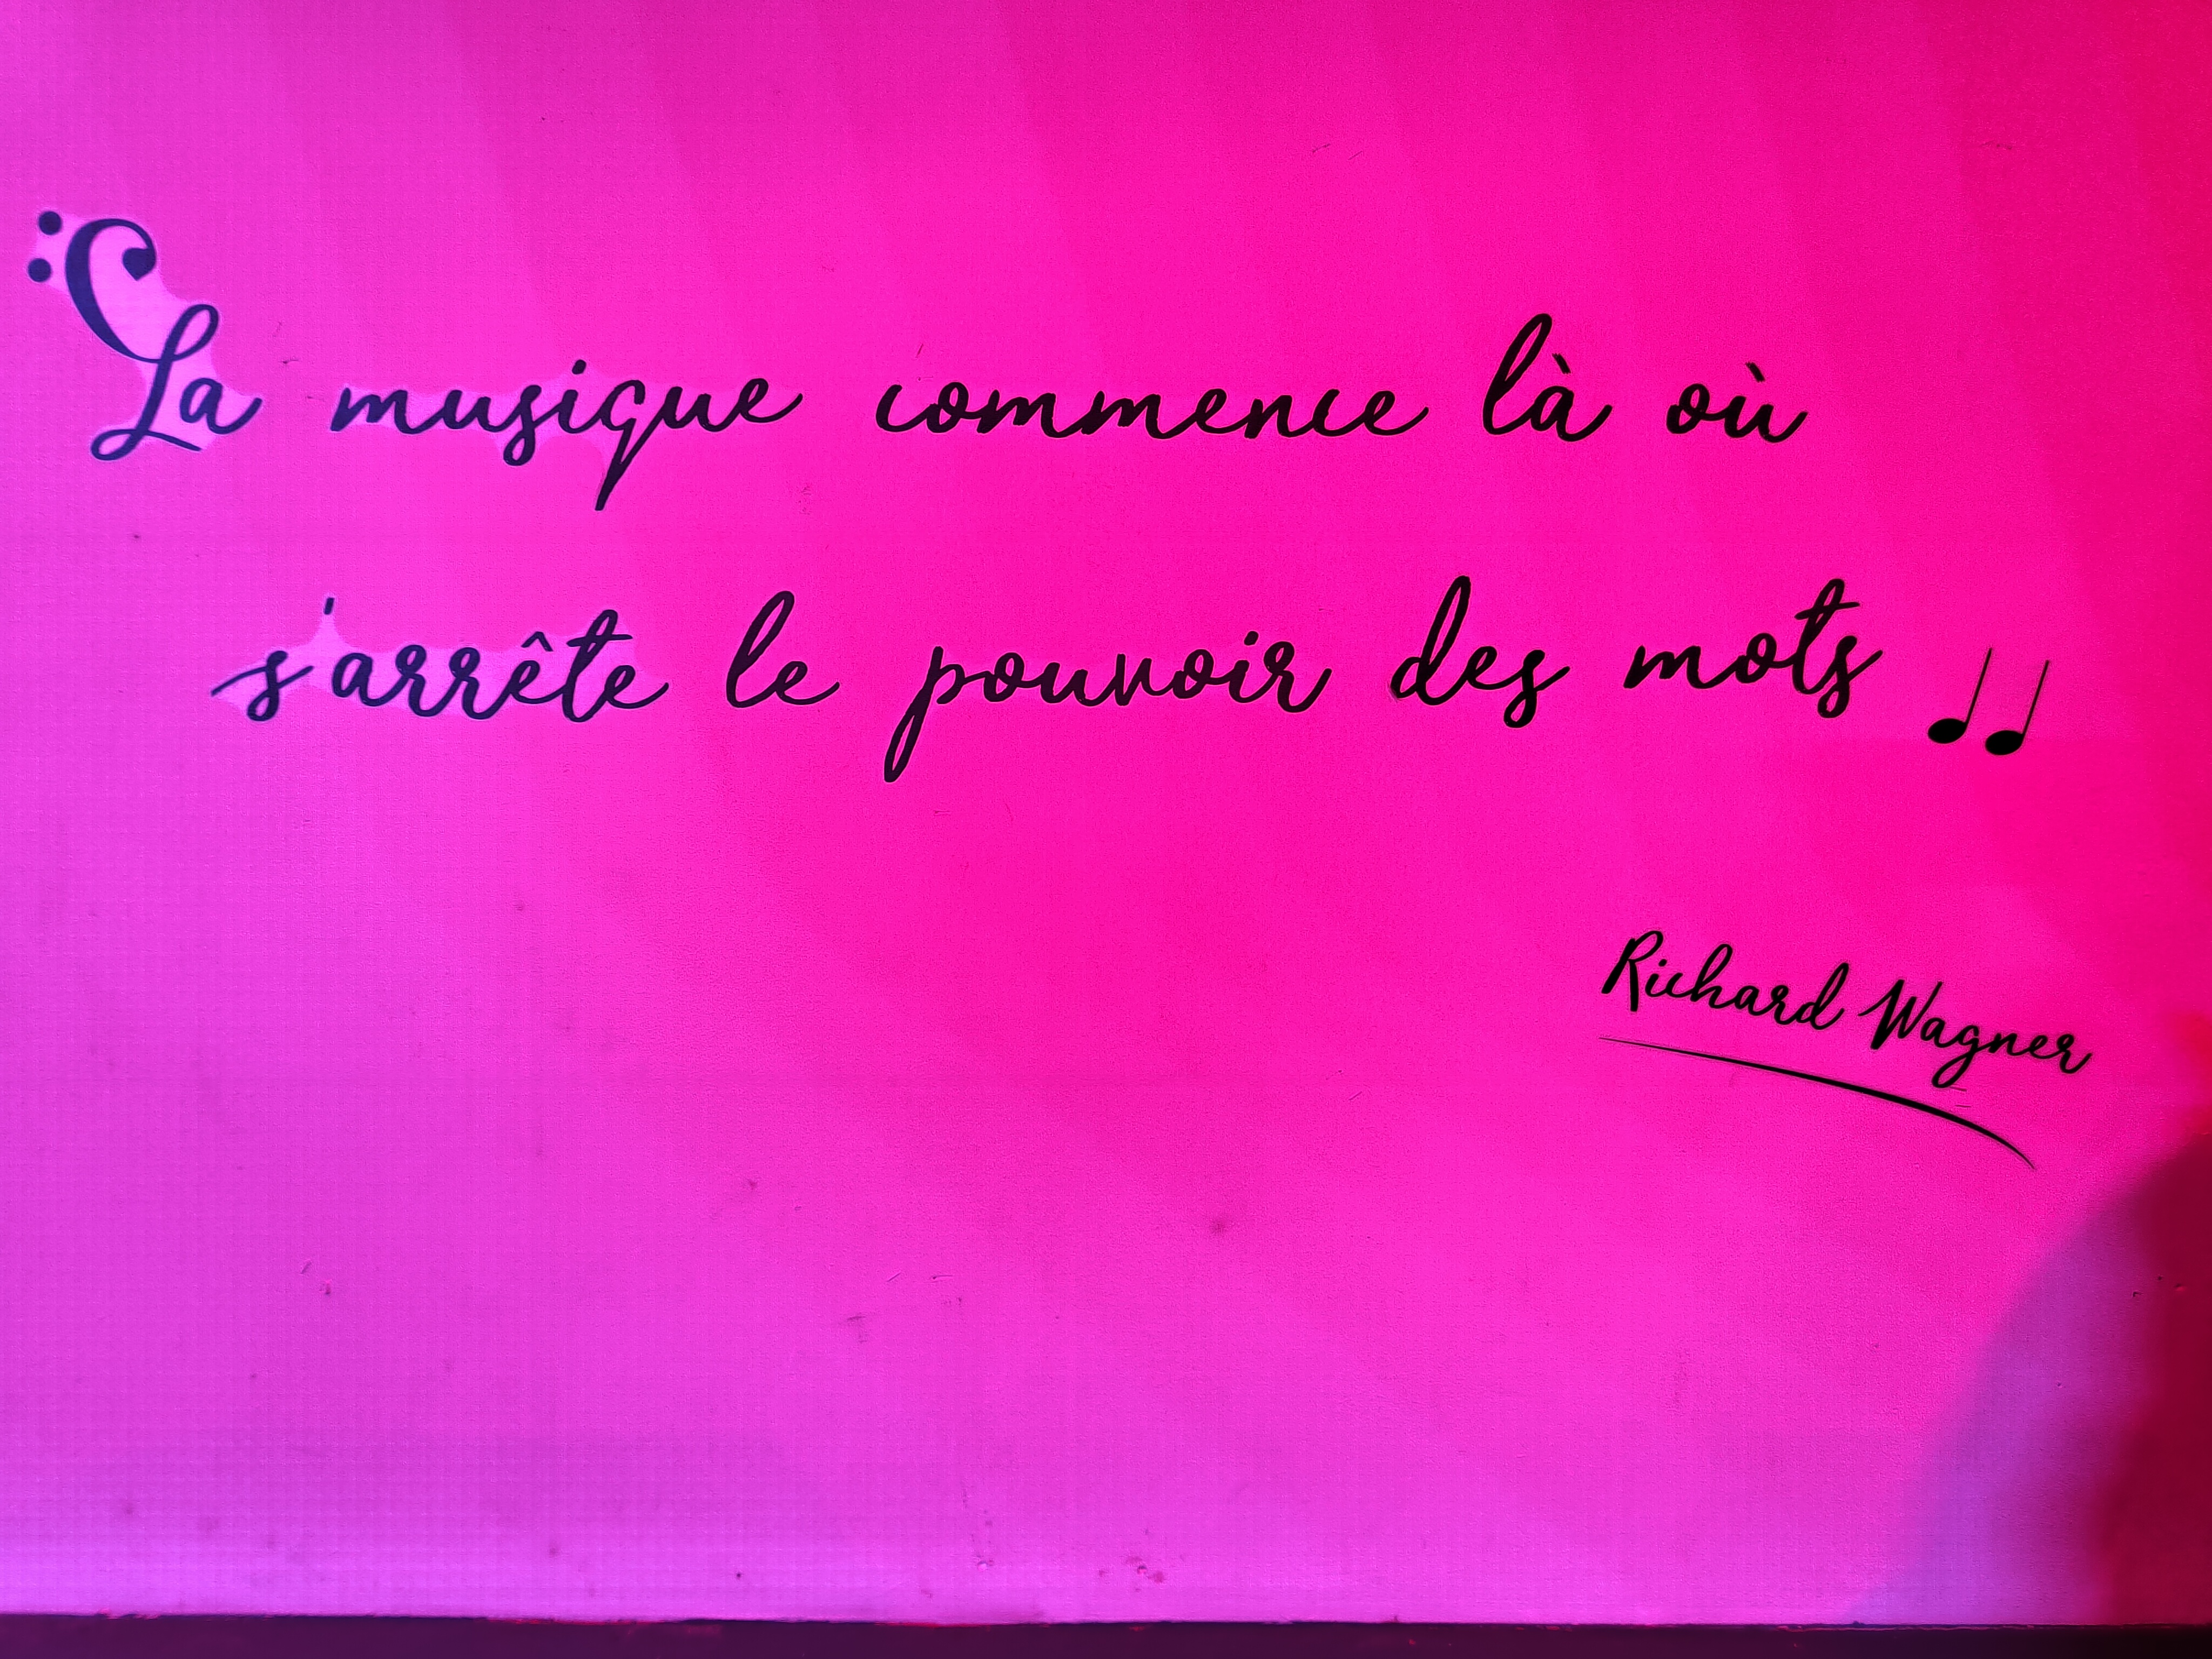 La musique commence là où
s'arrête le pouvoir des mots
Richard Wagner